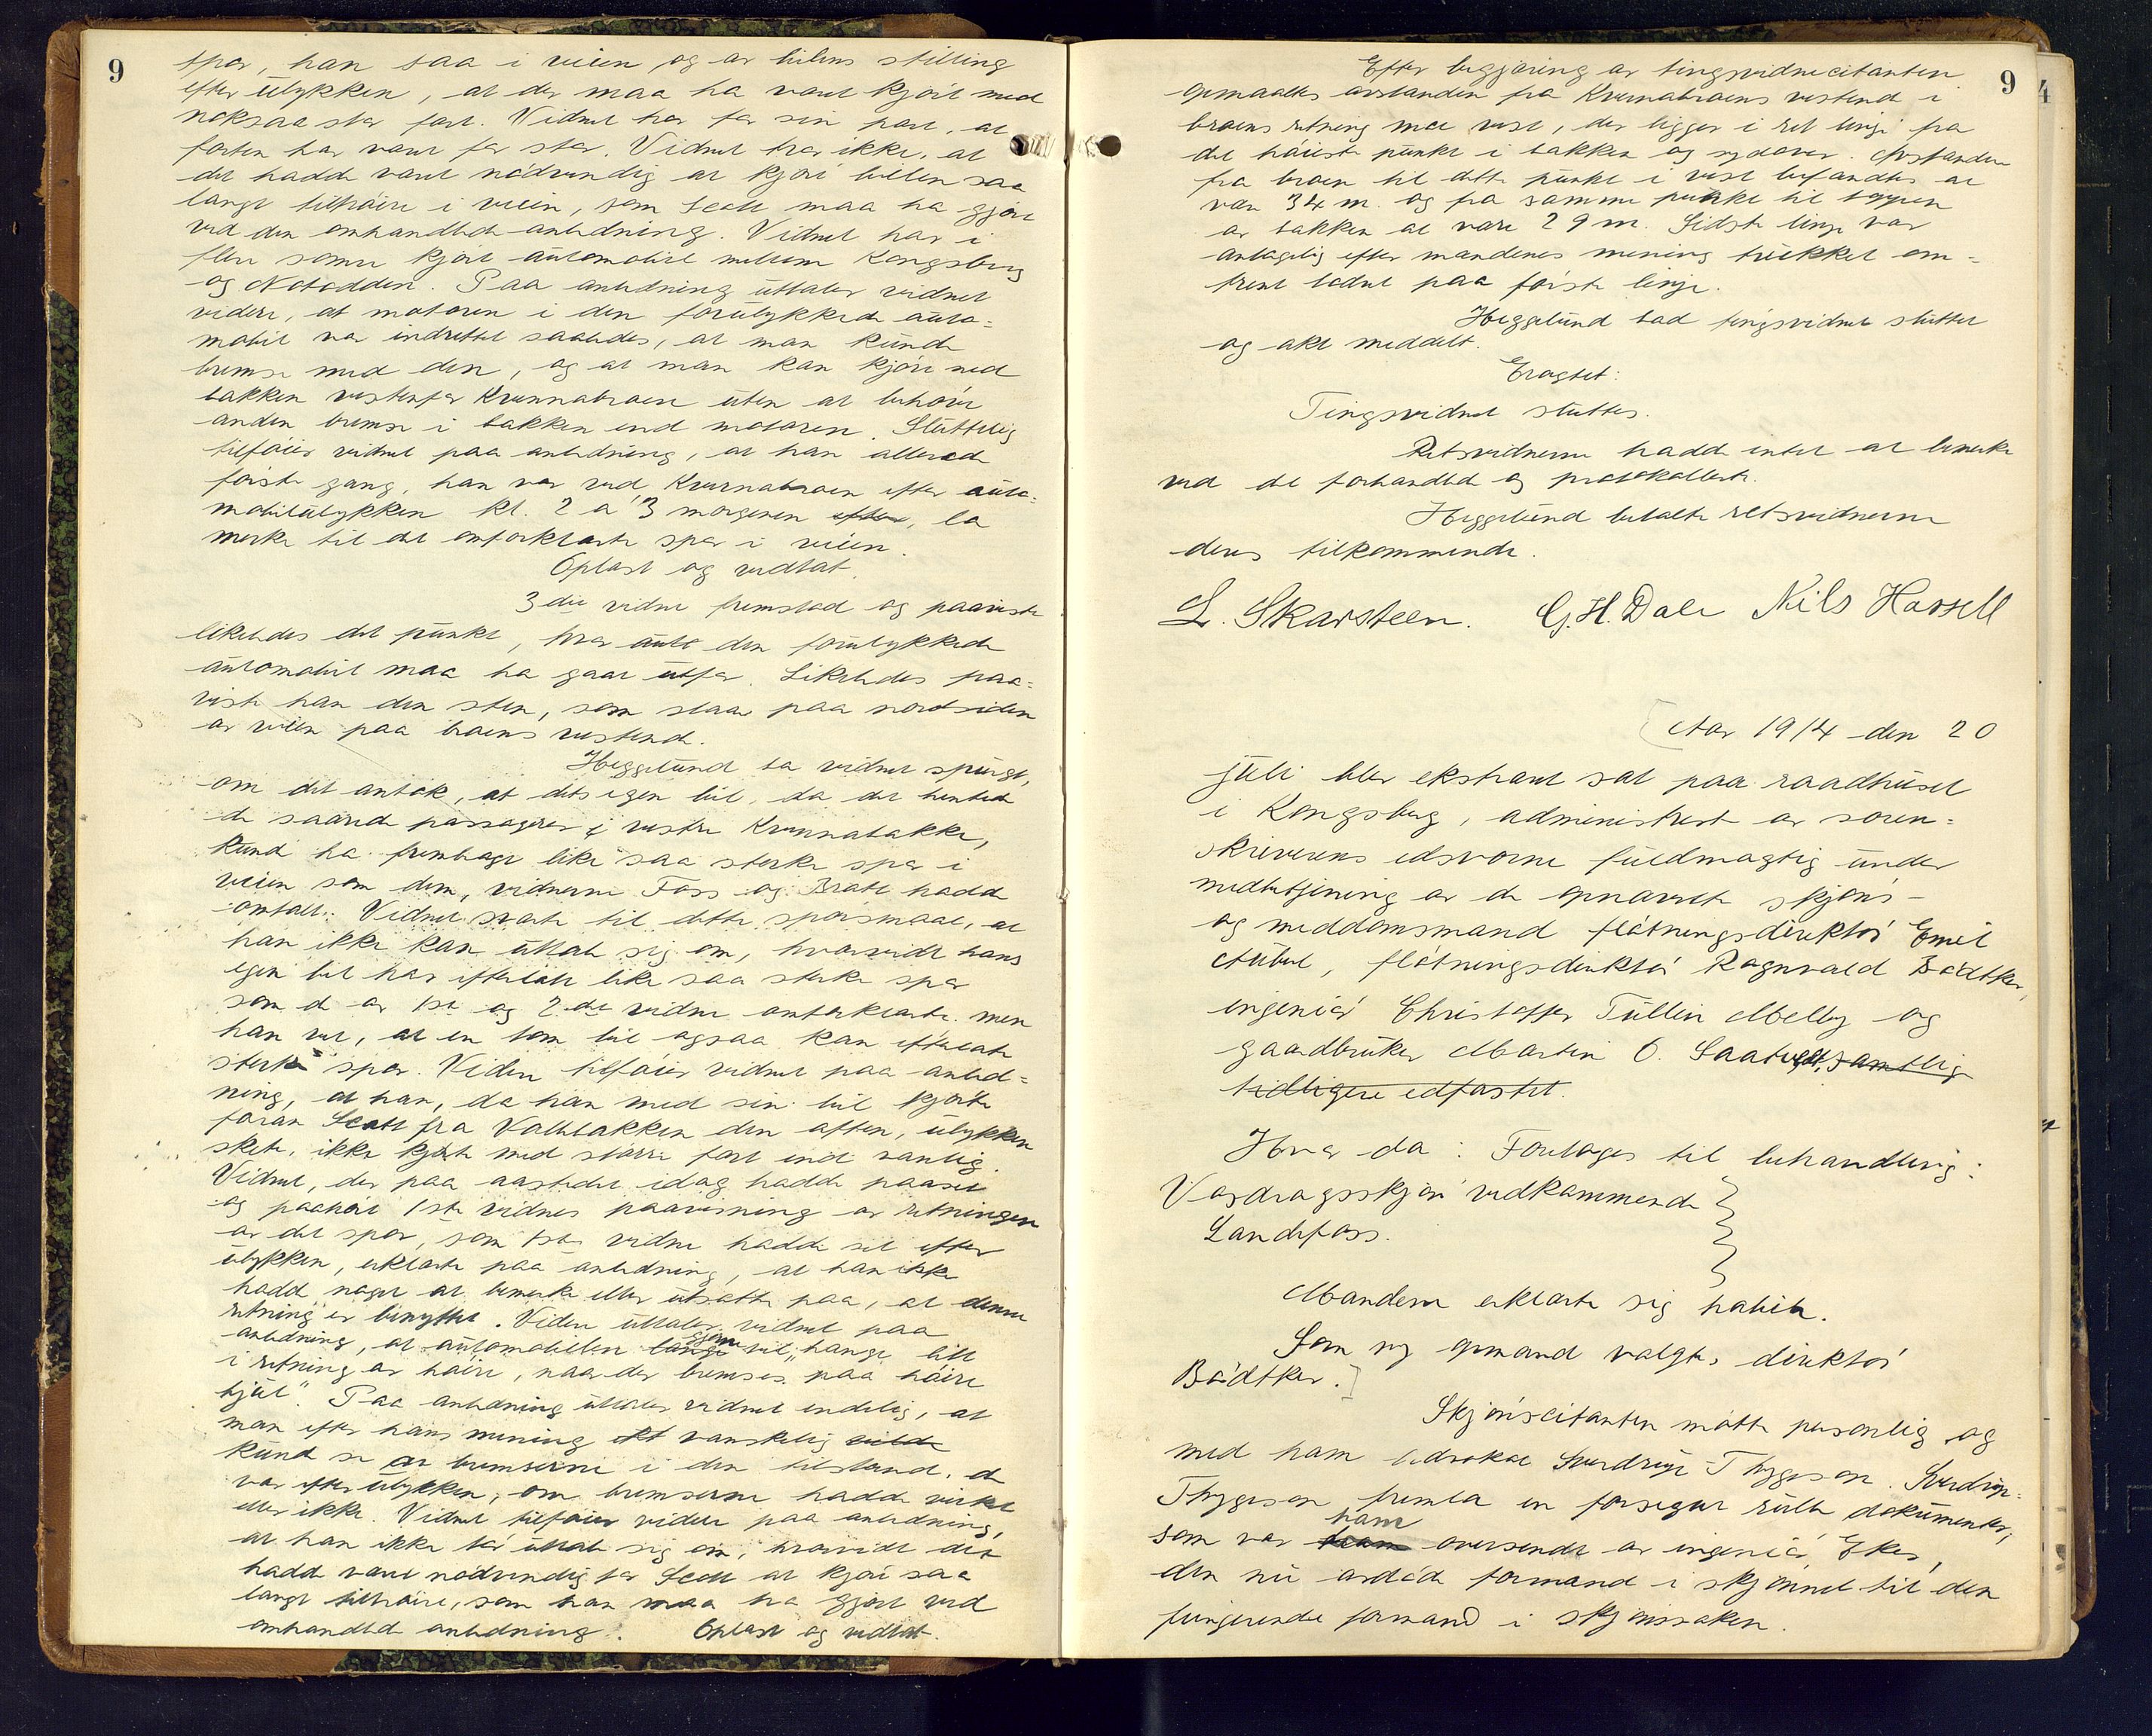 9
spor, han saa i veien og av bilens stilling
efter ulykken, at der maa ha været kjørt med
noksaa stor fart. Vidnet har for sin part, at
farten har været for stor. Vidnet tror ikke, at
det hadde været nødvendig at kjøre bilen saa
langt tilhøire i veien, som Scott maa ha gjort
ved den omhandlede anledning. Vidnet har i
flere somre kjørt automobil mellem Kongsberg
og Notodden. Paa anledning uttaler vidnet
videre, at motoren i den forulykkede auto-
mobil var indrettet saaledes, at man kunde
bremse med den, og at man kan kjøre ned
bakken vestenfor Kvernabroen uten at behøve
anden bremse i bakken end motoren. Sluttelig
tilføier vidnet paa anledning, at han allerede
første gang, han var ved Kvernabroen efter auto-
mobilulykken kl. 2 a 3 morgenen efter, la
merke til det omforklarte spor i veien.
Oplæst og vedtat.
3die vidne fremstod og paaviste
likeledes det punkt, hvor auto den forulykkede
automobil maa ha gaat utfor. Likeledes paa-
viste han den sten, som staar paa nordsiden
av veien paa broens vestende.
Heggelund ba vidnet spurgt,
om det antok, at dets egen bil, da det hentede
de saarede passagerer i vestre Kvernabakke,
kunde ha frembragt like saa sterke spor i
veien som dem, vidnerne Foss og Bratt hadde
omtalt. Vidnet svarte til dette spørsmaal, at
han ikke kan uttale sig om, hvorvidt hans
egen bil har efterlatt like saa sterke spor
som de av 1ste og 2det vidne omforklarte. men
han vet, at en tom bil ogsaa kan efterlate
sterke spor. Videre tilføier vidnet paa anled-
ning, at han, da han med sin bil kjørte
foran Scott fra Vollbakken den aften, ulykken
skete, ikke kjørte med større fart end vanlig.
Vidnet, der paa aastedet idag hadde paaset
og paahørt 1ste vidnes paavisning av retningen
av det spor, som 1ste vidne hadde set efter
ulykken, erklærte paa anledning, at han ikke
hadde noget at bemerke eller utsætte paa, at denne
retning er benyttet. Videre uttaler vidnet paa
anledning, at automobilen langs gjerne vil "hænge litt
i retning av høire, naar der bremses paa høire
hjul". Paa anledning uttaler vidnet endelig, at
man efter hans mening ikke vanskelig vilde
kunde se av bremserne i den tilstand, de
var efter ulykken, om bremserne hadde virket
eller ikke. Vidnet tilføier videre paa anledning,
at han ikke tør uttale sig om, hvorvidt det
hadde været nødvendig for Scott at kjøre saa
langt tilhøire, som han maa ha gjort ved
omhandlede anledning. Oplæst og vedtat.
9
4
Efter begjæring av tingsvidnecitanten
opmaaltes avstanden fra Kvernabroens vestende i
broens retning mot vest, der ligger i ret linje fra
det høieste punkt i bakken og sydover. Avstanden
fra broen til dette punkt i vest befandtes at
være 34 m. og fra samme punkt til toppen
av bakken at være 29 m. Sidste linje var
antagelig efter mændenes mening trukket om-
trent lodret paa første linje.
Heggelund bad tingsvidnet sluttet
og akt meddelt.
Eragtet:
Tingsvidnet sluttes.
Retsvidnerne hadde intet at bemerke
ved det forhandlede og protokollerte.
Heggelund betalte retsvidnerne
deres tilkommende.
L. Skarsteen. G. H. Dale Nils Hassell
Aar 1914 den 20
juli blev ekstraret sat paa raadhuset
i Kongsberg, administrert av soren-
skriverens edsvorne fuldmægtig under
medbetjening av de opnævnte skjøns-
og meddomsmænd fløtningsdirektør Emil
Aubert, fløtningsdirektør Ragnvald Bødtker,
ingeniør Christoffer Tullin Melby og
gaardbruker Martin O. Saatvedt, samtlige
tidligere edfæstet.
Hvor da: Foretages til behandling:
Vasdragsskjøn vedkommende
Landefoss.
Mændene erklærte sig habile.
Som ny formand valgtes direktør
Bødtker.
Skjønscitanten møtte personlig og
med ham advokat Sverdrup-Thygeson. Sverdrup-
Thygeson fremla en forseglet rulle dokumenter,
som var ham ham oversendt av ingeniør Eker,
den nu avdøde formand i skjønnet til den
fungerende formand i skjønssaken.